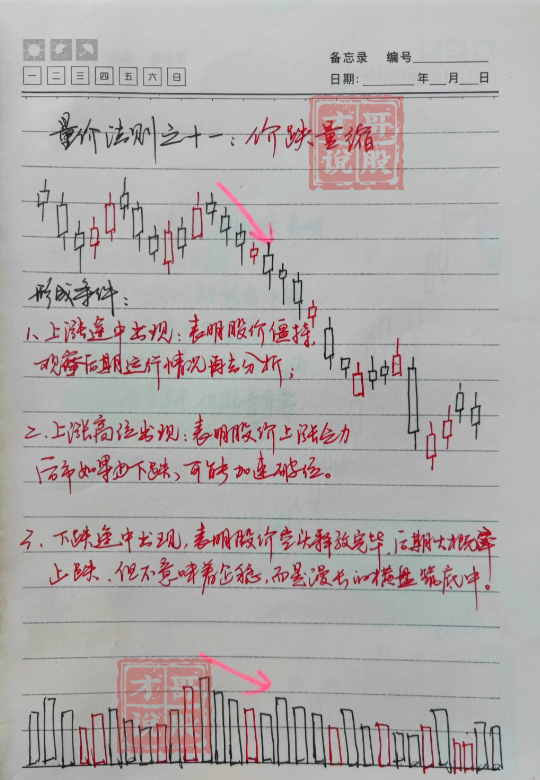 备忘录 编号
一 二 三 四 五 六 日
日期: 年 月 日
量价法则之十一：价跌量缩
才哥说股
形成条件：
1、上涨途中出现：表明股价僵持
观察后期运行情况再去分析；
二、上涨高位出现：表明股价上涨乏力
后市如果再下跌、可能加速破位。
三、下跌途中出现，表明股价空头释放完毕、后期大概率
止跌、但不意味着企稳，而是漫长的横盘筑底中！
才哥说股